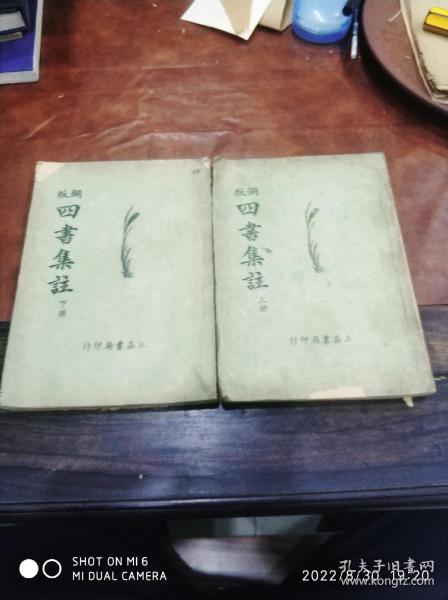 銅版
四書集註
下册
三品書局印行
銅版
四書集註
上册
三品書局印行
SHOT ON MI 6
MI DUAL CAMERA
2022/8/30 19:20
孔夫子旧书网
www.kongfz.com